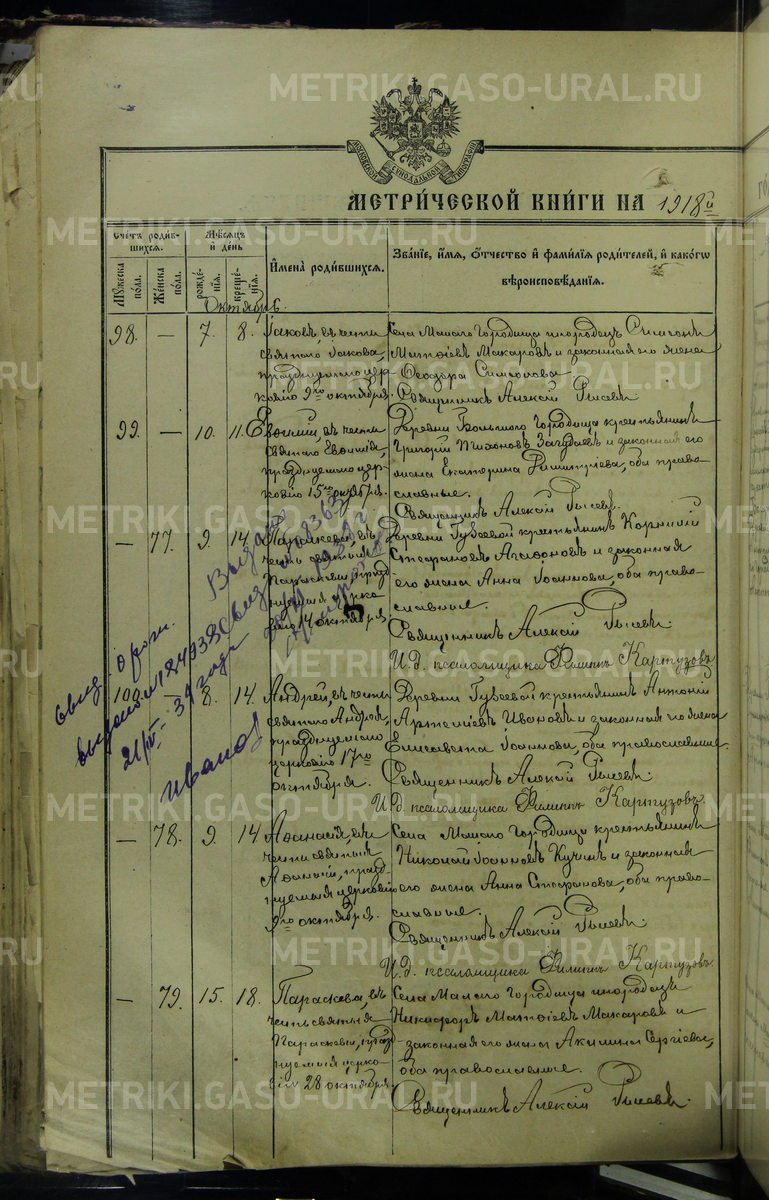 METRIKI.GASO-URAL.RU
МОСКОВСКОЙ СѴНОДАЛЬНОЙ ТИПОГРАФІИ
МЕТРИ́ЧЕСКОЙ КНИ́ГИ НА 1918й
Счетъ роди́в-
шихся.
Мѣ́сяцъ
и҆ де́нь
Мꙋ́жеска по́ла.
Же́нска по́ла.
рожде́-нїѧ.
креще́-нїѧ.
И҆мена̀ роди́вшихсѧ.
Зва́нїе, и҆́мѧ, ѻ҆́тчество и҆ фами́лїѧ роди́телей, и҆ како́гѡ
вѣроисповѣ́данїѧ.
Октябрь.
98. — 7. 8. Іаковъ, въ честь
святаго Іакова,
празднуемаго цер-
ковію 9го октября.
Села Малаго Городища инородецъ Симеонъ
Матѳіевъ Макаровъ и законная его жена
Ѳеодора Симеонова
Священникъ Алексій
99. — 10. 11. Евѳимій, въ честь
святаго Евѳимія,
празднуемаго цер-
ковію 15го октября.
Деревни Большого Городища крестьянинъ
Григорій Тихоновъ и законная его
жена Екатерина Димитріева, оба право-
славные.
Священникъ Алексій
— 77. 9. 14. Параскева, въ
честь святыя
Параскевы, празд-
нуемыя церко-
вію 14 октября
Деревни Губеевой крестьянинъ Корнилій
Стефановъ Агаѳоновъ и законная
его жена Анна Іоаннова, оба право-
славные.
Священникъ Алексій
И.д. псаломщика Филиппъ Картузовъ
100. — 8. 14. Андрей, въ честь
святаго Андрея,
празднуемаго
церковію 17го
октября.
Деревни Губеевой крестьянинъ Антоній
Артеміевъ Ивановъ и законная его жена
Елисавета Іоаннова, оба православные.
Священникъ Алексій
И.д. псаломщика Филиппъ Картузовъ.
— 78. 9. 14 Аѳанасія, въ
честь святыя
Аѳанасіи, празд-
нуемыя церковію
9го октября.
Села Малаго Городища крестьянинъ
Николай Іоанновъ и законная
его жена Анна Стефанова, оба право-
славные.
Священникъ Алексій
И.д. псаломщика Филиппъ Картузовъ.
— 79. 15. 18. Параскева, въ
честь святыя
Параскевы, празд-
нуемыя церко-
вію 28 октября.
Села Малаго Городища инородецъ
Никифоръ Матѳіевъ Макаровъ и
законная его жена Акилина Сергіева,
оба православные.
Священникъ Алексій
Свид. о рож.
Иванов